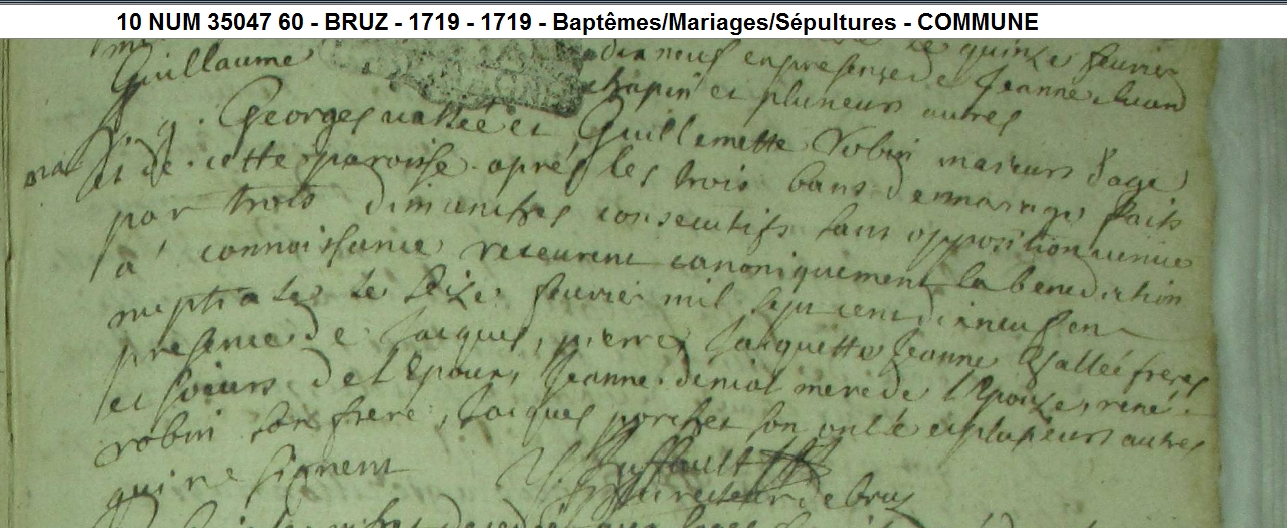 10 NUM 35047 60 - BRUZ - 1719 - 1719 - Baptêmes/Mariages/Sépultures - COMMUNE
le quinze feuvrier
Guillaume dix neuf en presenze de Jeanne
chapin et plusieurs autres
Georges vallée et Guillemette Robin majeurs d'age
et de cette paroisse après les trois bans de mariage faits
par trois dimanches consecutifs sans opposition venüe
a connoissance receurent canoniquement la benediction
nuptiale le seize feuvrier mil sept cent dix neuf en
presence de Jacques, pierre Jacquette Jeanne Vallée freres
et soeurs de l'Epoux, Jeanne denial mere de l'Epouze, rené
robin son frere, Jacques porcher son oncle et plusieurs autres
qui ne signent
recteur de bruz